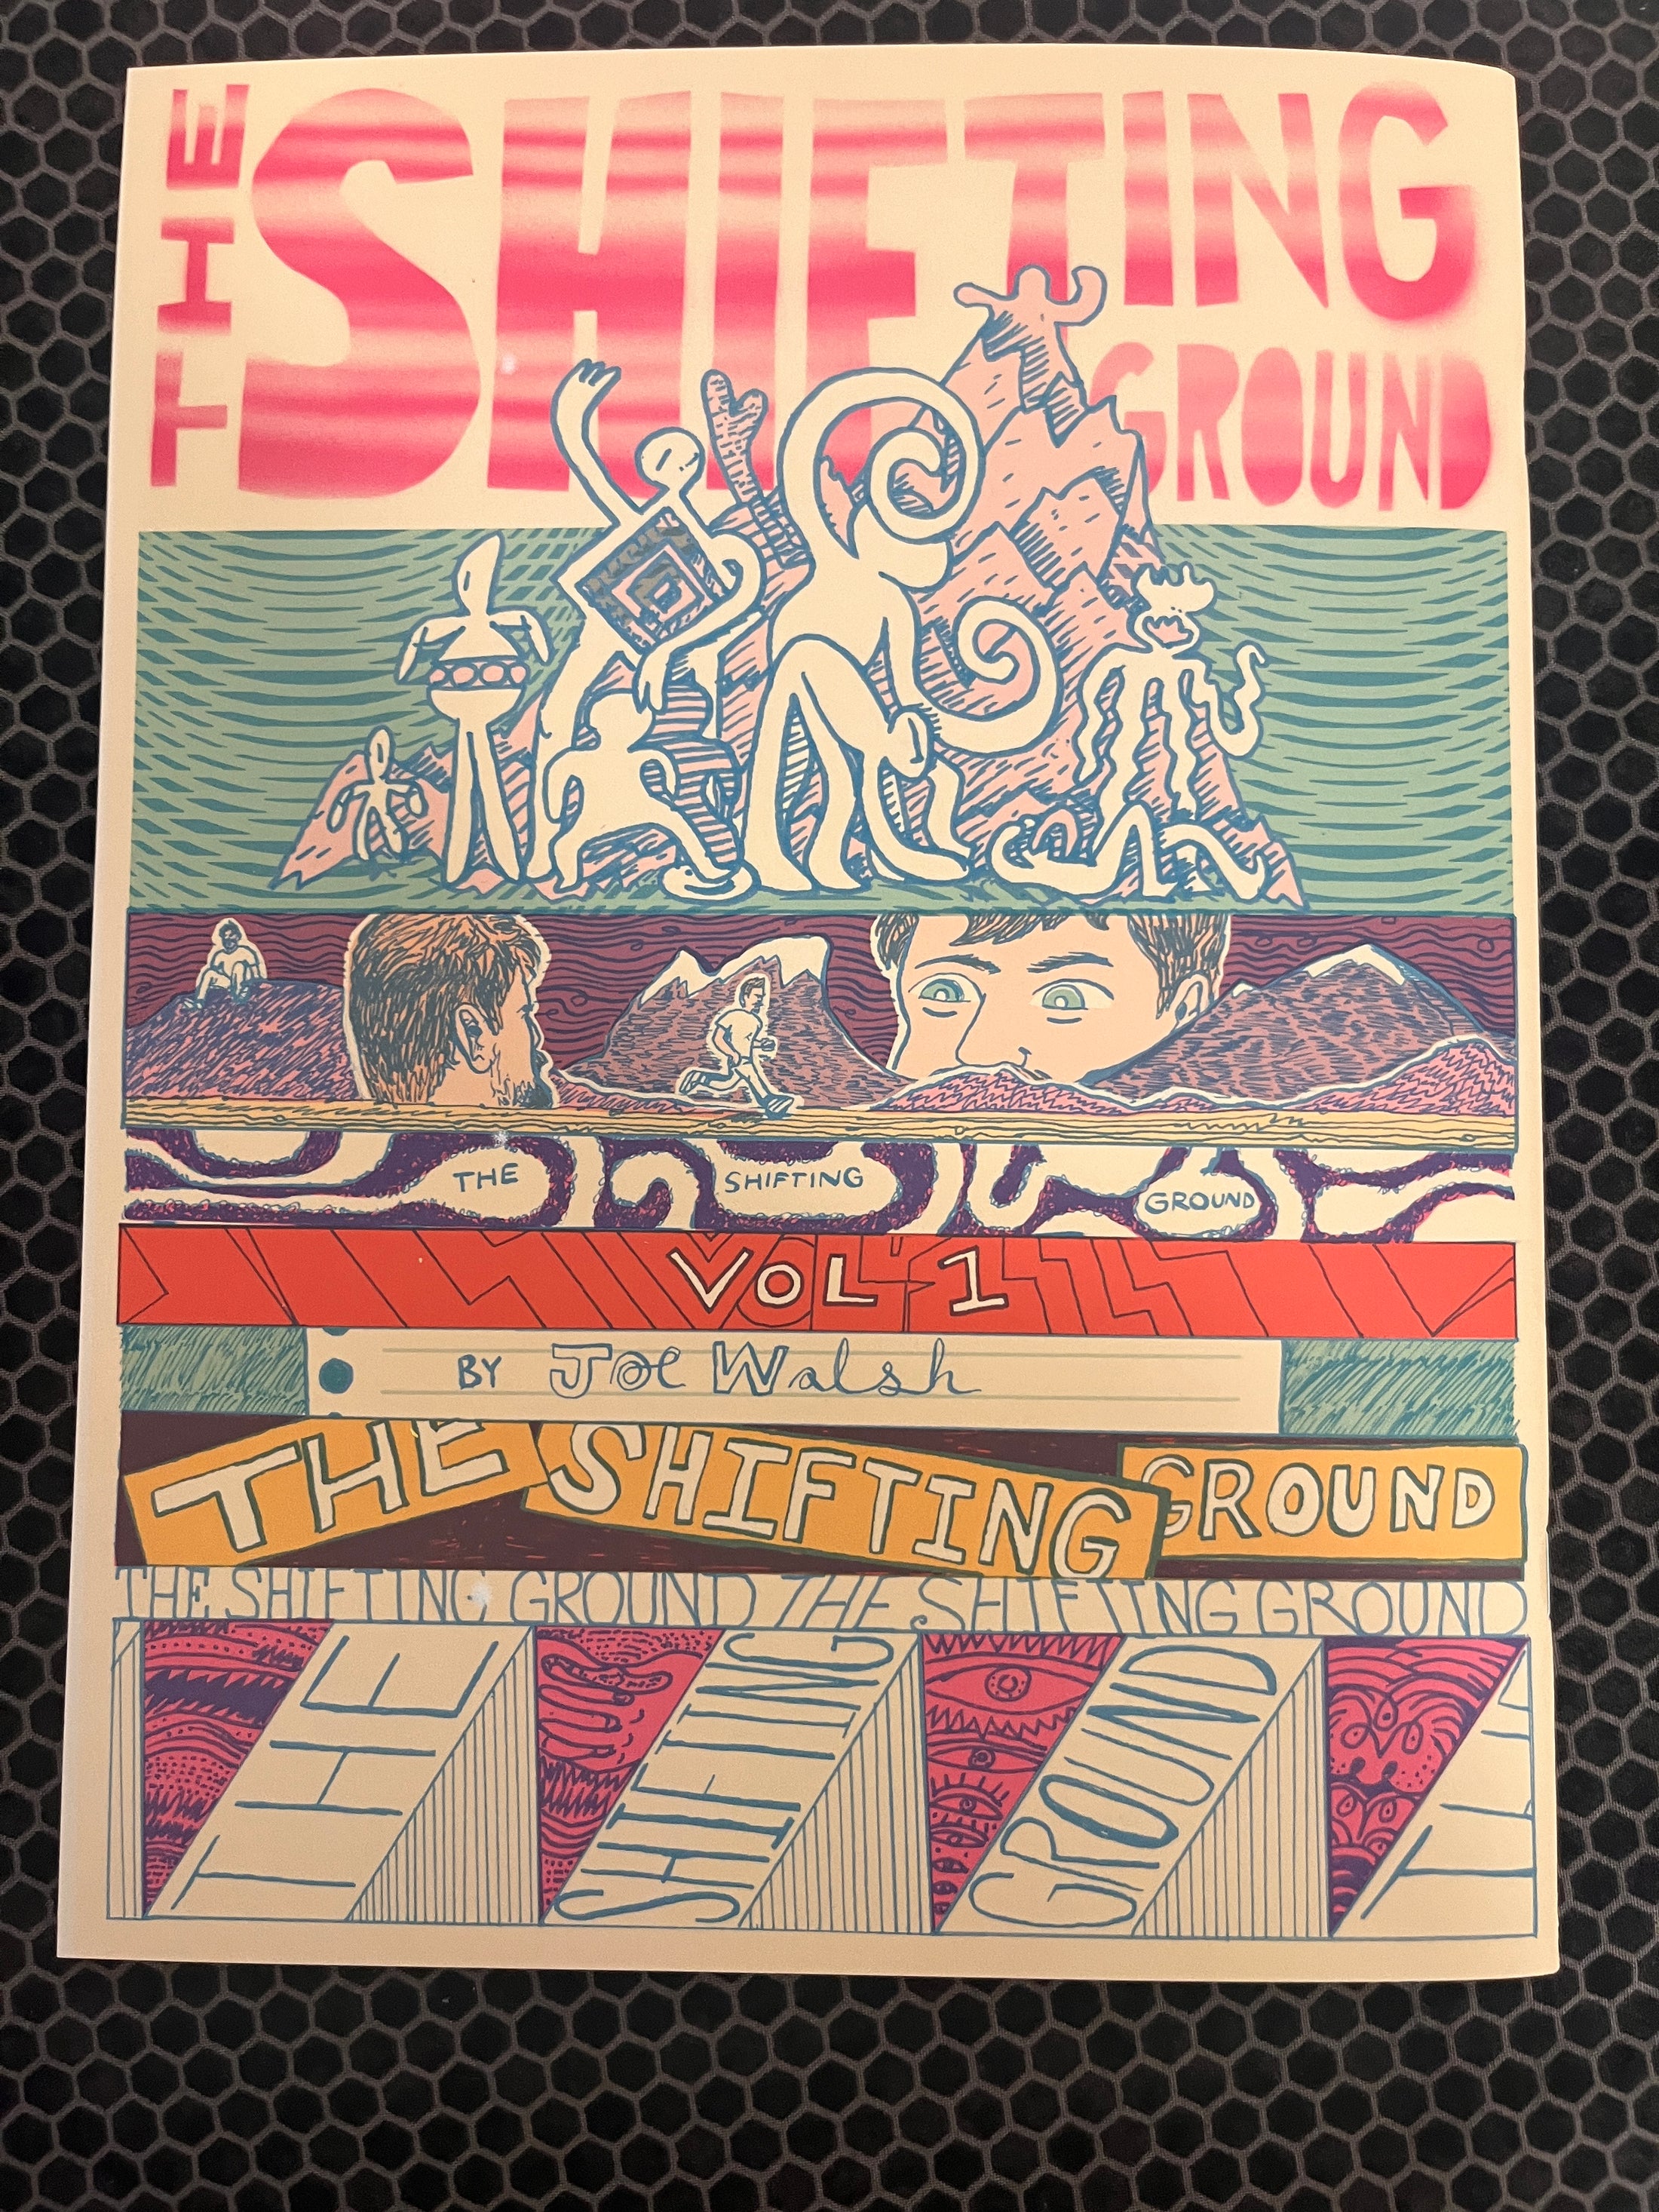 THE SHIFTING
GROUND
THE SHIFTING GROUND
VOL 1
BY Joe Walsh
THE SHIFTING GROUND
THE SHIFTING GROUND THE SHIFTING GROUND
THE SHIFTING GROUND THE